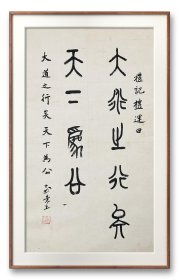 禮記禮運曰
大道之行矣
天下為公
大道之行矣天下為公